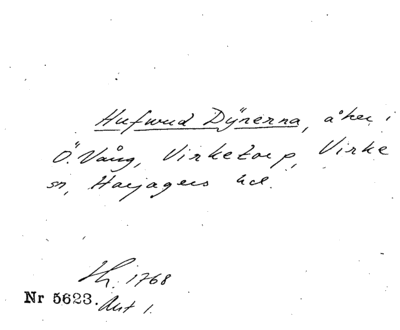 Hufwud Dÿnerna, åker i
Ö. Vång, Virketorp, Virke
sn, Harjagers hd.
Lh. 1768
Nr 5623. Akt 1.